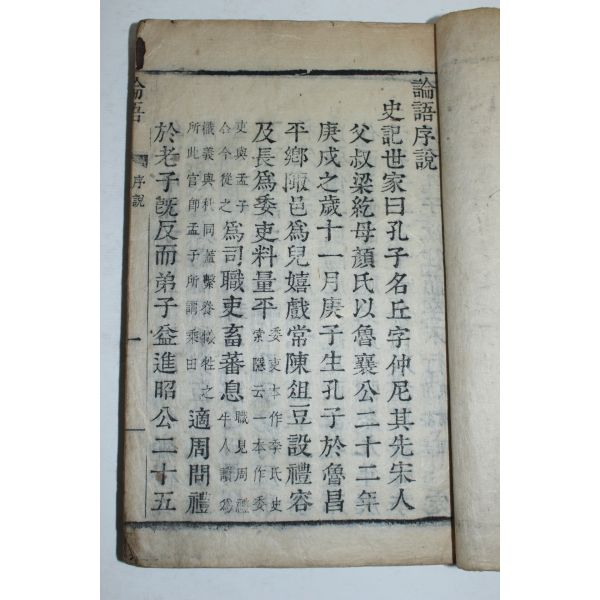 論語序說
史記世家曰孔子名丘字仲尼其先宋人
父叔梁紇母顏氏以魯襄公二十二年
庚戌之歲十一月庚子生孔子於魯昌
平鄉陬邑爲兒嬉戲常陳俎豆設禮容
及長爲委吏料量平
委吏本作季氏史
索隱云一本作委
吏與孟子
合今從之
爲司職吏畜蕃息
職見周禮
牛人讀爲
樴義與杙同蓋繫養犧牲之
所此官卽孟子所謂乘田
適周問禮
於老子旣反而弟子益進昭公二十五
論吾
序說
一